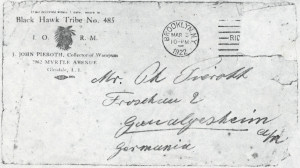 Black Hawk Tribe No. 485
I. O. R. M.
J. JOHN PIEROTH, Collector of Wampum
MYRTLE AVENUE
Glendale, L. I.
BROOKLYN, N.Y.
MAR
10-PM
1922
Mr. Ph Pieroth
Froschau 2
Gaualgesheim
a/R
Germania